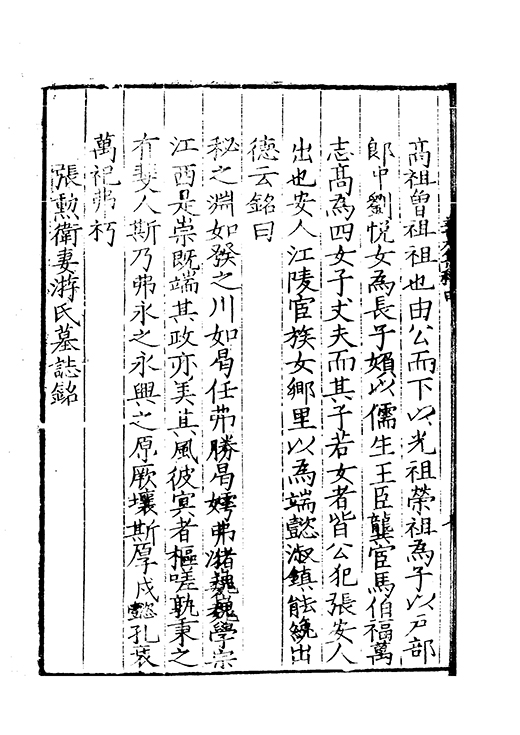 高祖曽祖祖也由公而下以光祖榮祖為子以戸部
郎中劉悦女為長子嬪以儒生王臣龔宦馬伯福萬
志髙為四女子丈夫而其子若女者皆公犯張安人
出也安人江陵宦族女鄉里以為端懿淑鎮能繞出
德云銘曰
秘之淵如發之川如曷任弗勝曷嫮弗潴巍巍學宗
江西是崇既端其政亦美其風彼冥者樞嗟孰秉之
有斐人斯乃弗永之永興之原厥壤斯厚戍懿孔裒
萬祀弗朽
張勲衛妻游氏墓誌銘